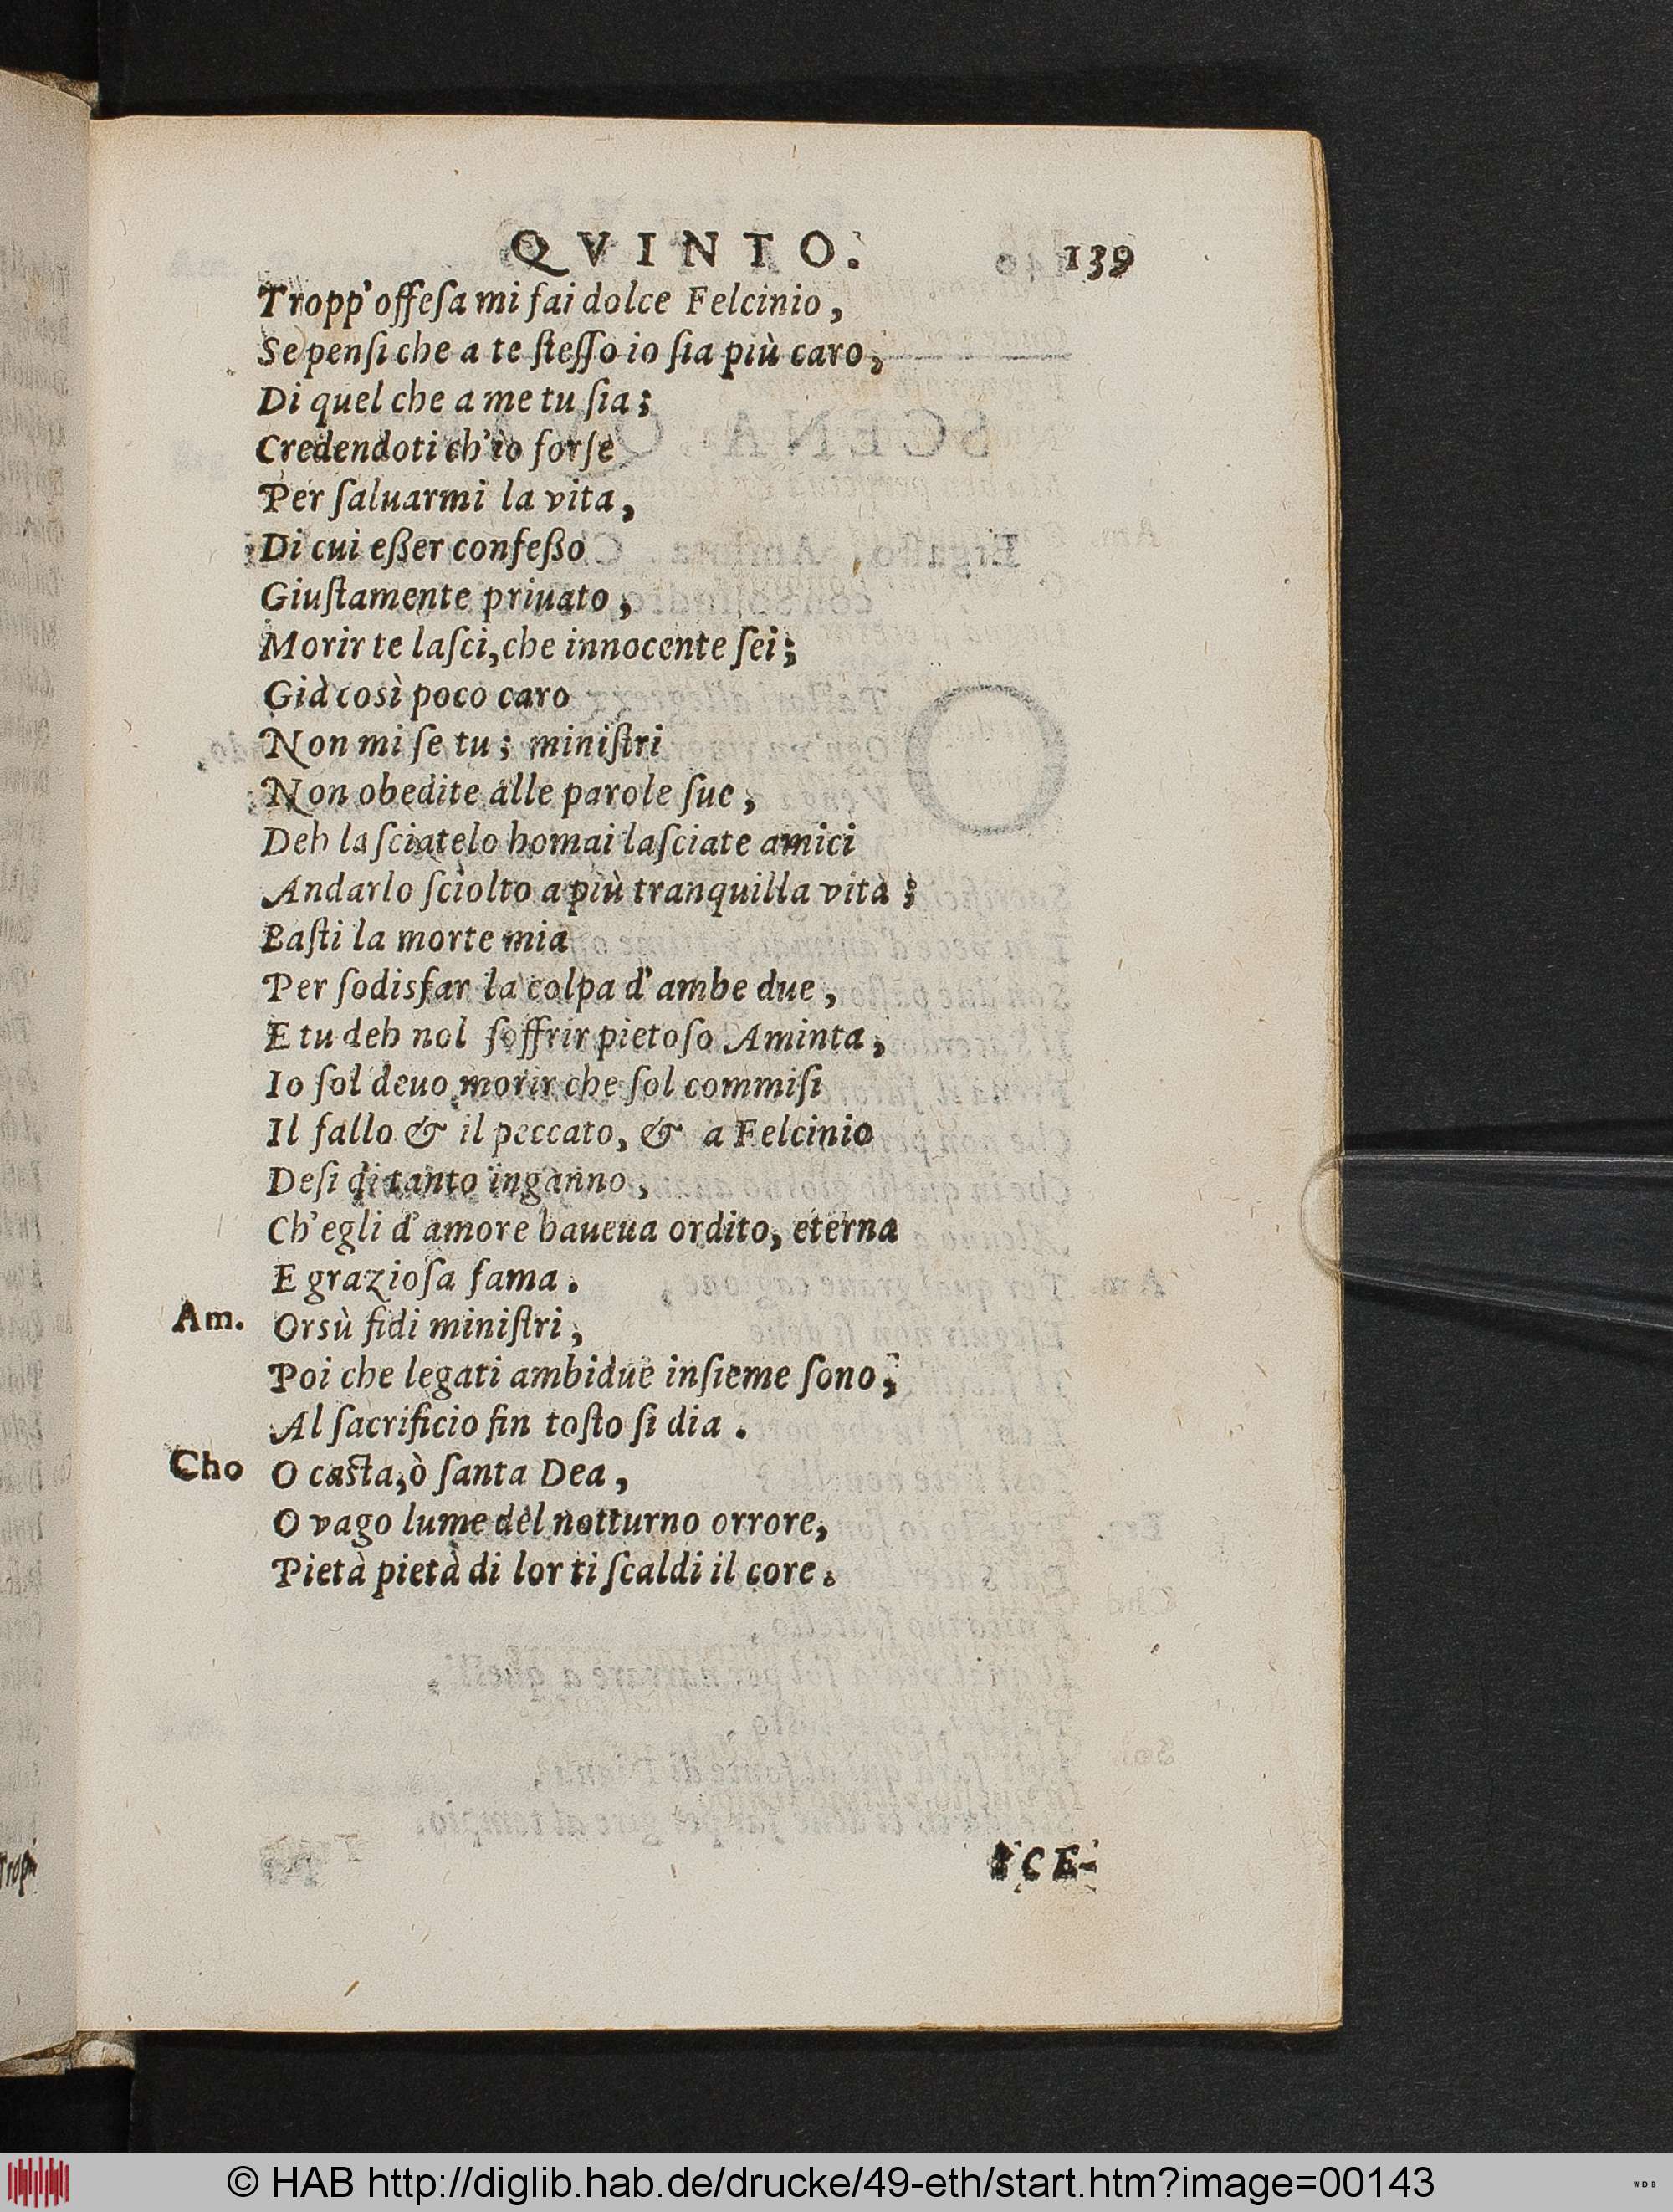 QVINTO. 139
Tropp'offeſa mi fai dolce Felcinio,
Se penſi che a te ſteſſo io ſia più caro,
Di quel che a me tu ſia;
Credendoti ch'io forſe
Per ſaluarmi la vita,
Di cui eßer confeßo
Giuſtamente priuato,
Morir te laſci, che innocente ſei;
Già così poco caro
Non mi ſe tu; miniſtri
Non obedite alle parole ſue,
Deh laſciatelo homai laſciate amici
Andarlo ſciolto a più tranquilla vita;
Baſti la morte mia
Per ſodisfar la colpa d'ambe due,
E tu deh nol ſoffrir pietoſo Aminta,
Io ſol deuo morir che ſol commiſi
Il fallo & il peccato, & a Felcinio
Deſi di tanto inganno,
Ch'egli d'amore haueua ordito, eterna
E grazioſa fama.
Am. Orsù fidi miniſtri,
Poi che legati ambidue inſieme ſono,
Al ſacrificio fin toſto ſi dia.
Cho O caſta, ò ſanta Dea,
O vago lume del notturno orrore,
Pietà pietà di lor ti ſcaldi il core.
SCE-
© HAB http://diglib.hab.de/drucke/49-eth/start.htm?image=00143